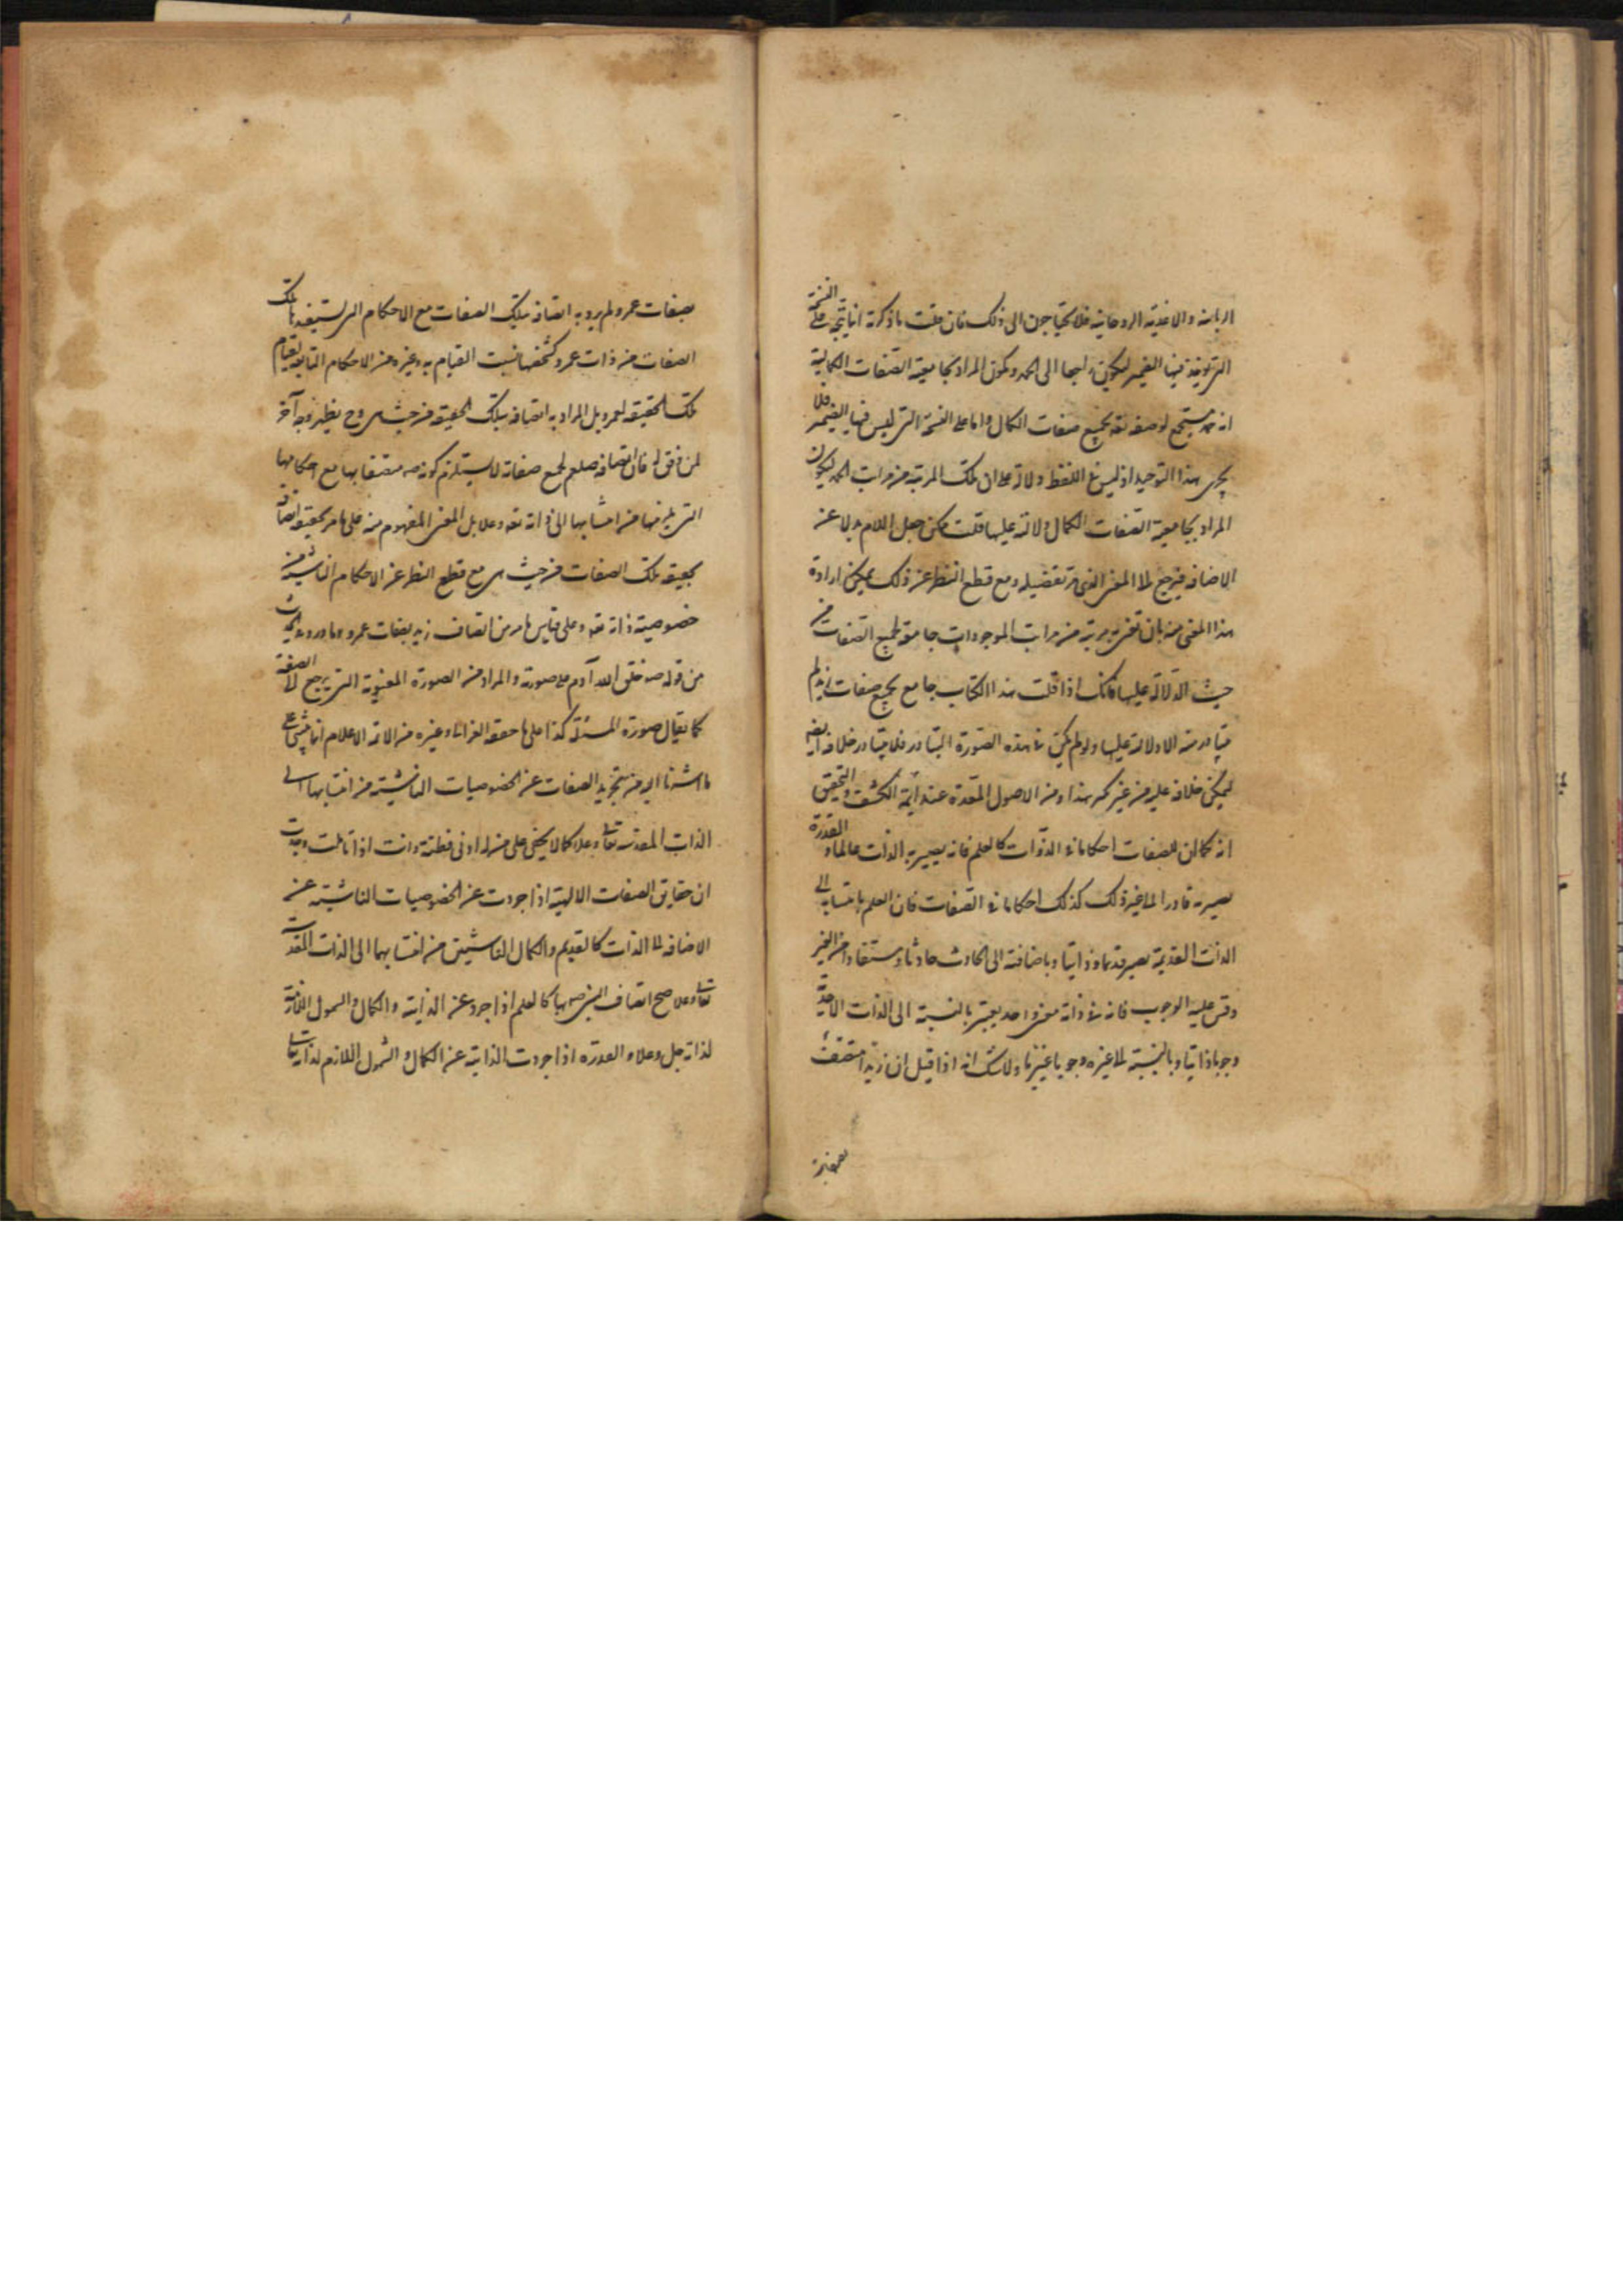 الربانية والاغذية الروحانية فلا يحتاجون الى ذلك فان قلت ما ذكرته انما يتجه على النسخة
التي توجد فيها الضمير ليكون راجعا الى الحمد ويكون المراد بجامعية الصفات الكمالية
انه مستجمع لوصفه تعه بجميع صفات الكمال واما على النسخة التي ليس فيها الضمير فلا
يجرى هذا التوجيه اذ ليس في اللفظ دلالة على ان تلك المرتبة من مراتب الحمد ليكون
المراد بجامعية الصفات الكمال دلالته عليها قلت يمكن جعل اللام بدلا عن
الاضافة فيرجع الى المعنى الذي مر تفصيله ومع قطع النظر عن ذلك يمكن ارادة
هذا المعنى منه بان مرتبة من مراتب الموجودات جامعة لجميع الصفات من
حيث الدلالة عليها فانك اذا قلت هذا الكتاب جامع لجميع صفات زيد لم
يتبادر منه الا دلالته عليها ولو لم يكن في هذه الصورة التبادر فلا يتبادر خلافه ايضه
ليمكن خلافه عليه من غير هذا ومن الاصول المقررة عند ائمة الكشف والتحقيق
انه كما ان للصفات احكاما في الذوات كالعلم فانه يصير به الذات عالما والقدرة
يصير به قادرا الى غير ذلك كذلك احكاما في الصفات فان العلم بانتسابه الى
الذات القديمة يصير قديما وذاتيا وباضافته الى الحادث حادثا ومستفادا من الغير
وقس عليه الوجوب فانه في ذاته معنى واحد يعتبر بالنسبة الى الذات الاحدية
وجوبا ذاتيا وبالنسبة الى غيره وجوبا غيريا ولا شك انه اذا قيل ان زيدا متصف
بصفات
بصفات عمرو لم يرد به اتصافه بتلك الصفات مع الاحكام التي تستفيدها تلك
الصفات من ذات عمرو كتشخصها بسبب القيام به وغيره من الاحكام التابعة لقيام
تلك الحقيقة لعمرو بل المراد به اتصافه بتلك الحقيقة من حيث هي وح يظهر وجه آخر
لمن وفق له فان اتصافه صلعم لجميع صفاته لا يستلزم كونه صه متصفا بها مع احكامها
التي يلزمها من انتسابها الى ذاته تعه وعلا بل المعنى المفهوم منه على ما مر تحقيقه اتصافه
بحقيقة تلك الصفات من حيث هي مع قطع النظر عن الاحكام الناشية من
خصوصية ذاته تعه وعلى قياس ما مر من اتصاف زيد بصفات عمرو وما ورد في الحديث
من قوله صه خلق الله آدم على صورته والمراد من الصورة المعنوية التي يرجع الى الصفة
كما يقال صورة المسئلة كذا على ما حققه الغزالي وغيره من الائمة الاعلام انما يبتنى على
ما اشرنا اليه من تجريد الصفات عن الخصوصيات الناشية من انتسابها الى
الذات المقدسة تعالى وعلا كما لا يخفى على من له ادنى فطنة وانت اذا تاملت وجدت
ان حقايق الصفات الالهية اذا جردت عن الخصوصيات الناشية عن
الاضافة الى الذات كالقديم والكمال الناشيين من انتسابهما الى الذات المقدسة
تعالى وعلا صح اتصاف البشر بها كالعلم اذا جرد عن الذاتية والكمال والشمول اللازمة
لذاته جل وعلا والقدرة اذا جردت الذاتية عن الكمال والشمول اللازم لذاته تعالى